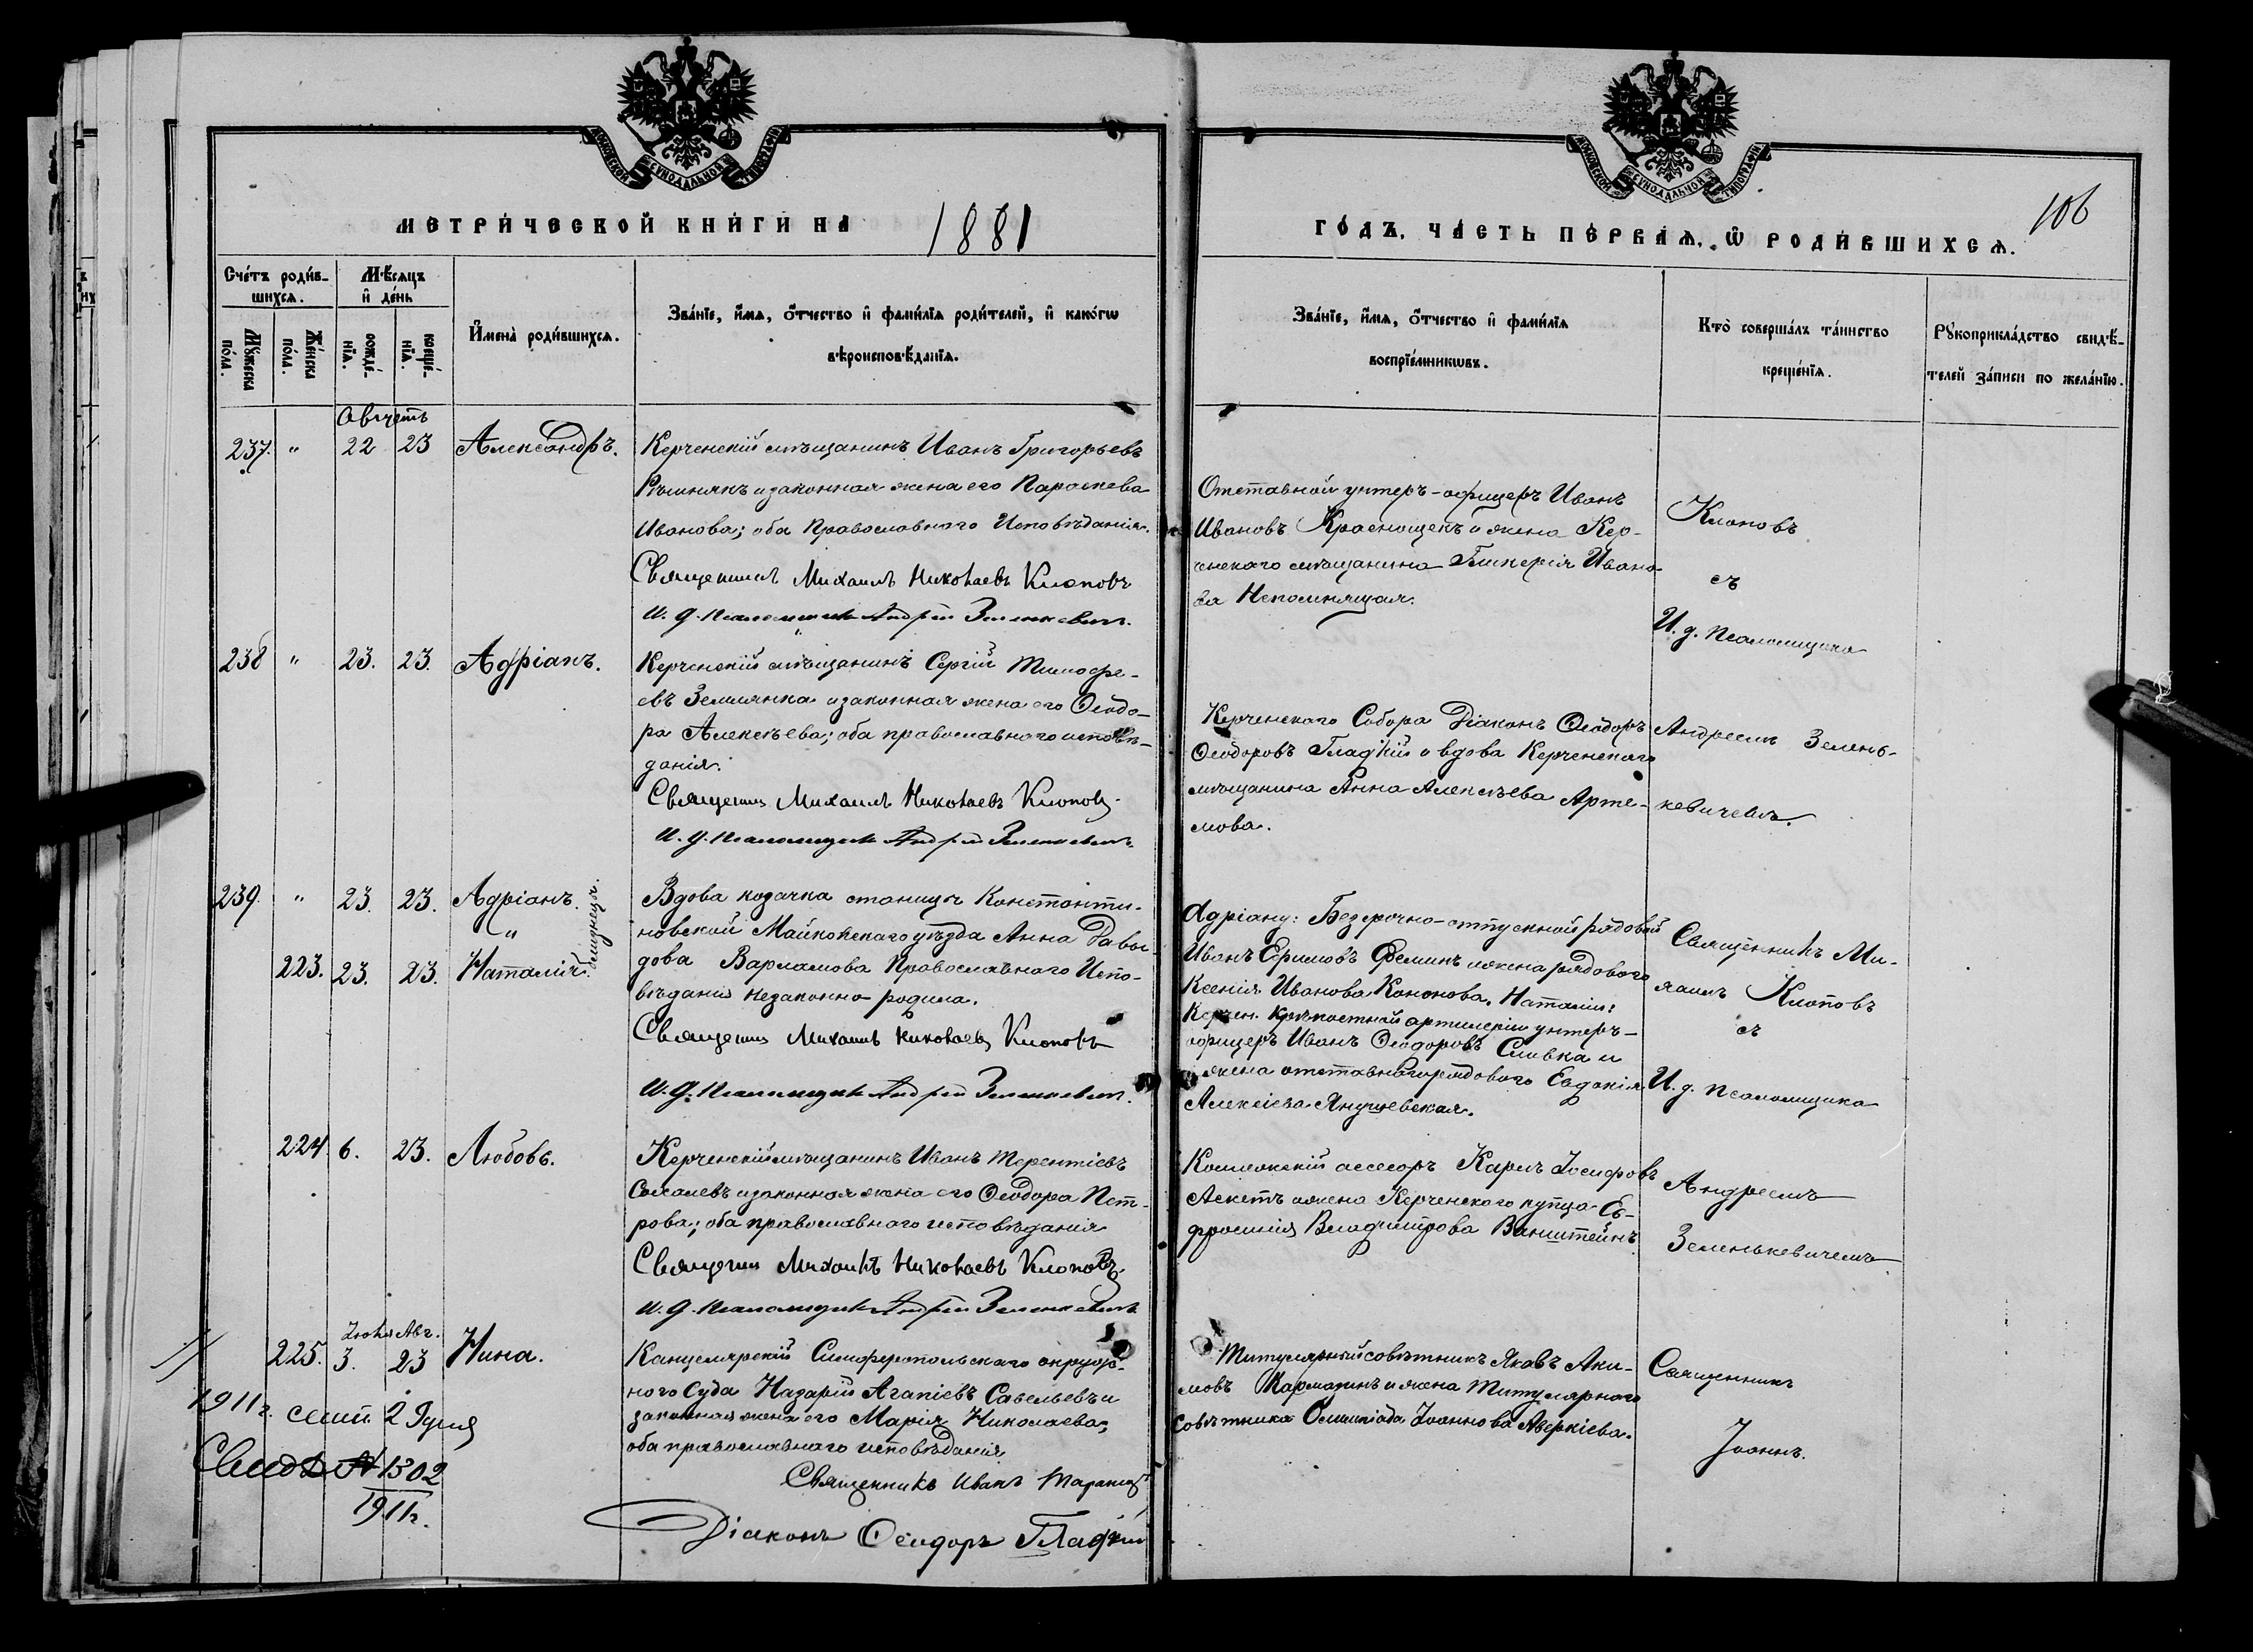 МОСКОВСКОЙ СѴНОДАЛЬНОЙ ТИПОГРАФІИ
МОСКОВСКОЙ СѴНОДАЛЬНОЙ ТИПОГРАФІИ
МЕТРИЧЕСКОЙ КНИГИ НА 1881
ГОДЪ, ЧАСТЬ ПЕРВАЯ, Ѡ РОДИВШИХСЯ.
106
Счетъ родившихся.
Мужеска пола.
Женска пола.
Мѣсяцъ и день
рожденія.
крещенія.
Имена родившихся.
Званіе, имя, отчество и фамилія родителей, и какогѡ
вѣроисповѣданія.
Званіе, имя, отчество и фамилія
воспріемникѡвъ.
Кто совершалъ таинство
крещенія.
Рукоприкладство свидѣ-
телей записи по желанію.
Августъ
237. " 22 23 Александръ.
Керченскій мѣщанинъ Иванъ Григорьевъ
и законная жена его Параскева
Иванова; оба Православного Исповѣданія.
Священникъ Михаилъ Николаевъ Клоповъ
И. д. Псаломщика Андрей Зеленкевичъ.
Отставной унтеръ-офицеръ Иванъ
Ивановъ Краснощекъ и жена Кер-
ченского мѣщанина Гликерія Ивано-
ва Непомнящая.
Клоповъ
съ
И. д. Псаломщика
238 " 23. 23. Адріанъ.
Керченскій мѣщанинъ Сергій Тимофе-
евъ Землянка и законная жена его Ѳеодо-
ра Алексѣева; оба православного исповѣ-
данія.
Священникъ Михаилъ Николаевъ Клоповъ.
И. д. Псаломщика Андрей Зеленкевичъ.
Керченского Собора Діаконъ Ѳеодоръ
Ѳеодоровъ Гладкій и вдова Керченского
мѣщанина Анна Алексѣева Арте-
мова.
Андреемъ Зелень-
кевичемъ.
239. " 23. 23. Адріанъ.
"
близнецы.
223. 23. 23. Наталія.
Вдова козачка станицы Константи-
новской Майкопскаго уѣзда Анна Давы-
дова Варламова Православного Испо-
вѣданія незаконно родила.
Священникъ Михаилъ Николаевъ Клоповъ
И. д. Псаломщика Андрей Зеленкевичъ.
Адріану: Безсрочно-отпускной рядовой
Иванъ Ефимовъ Ѳеминъ и жена рядового
Ксенія Иванова Кононова. Наталіи:
Керчен. крѣпостной артилеріи унтеръ-
офицеръ Иванъ Ѳеодоровъ Сливка и
жена отставного рядового Евдокія
Алексіева Янушевская.
Священникъ Ми-
хаилъ Клоповъ
съ
И. д. Псаломщика
224 6. 23. Любовь.
Керченскій мѣщанинъ Иванъ Терентіевъ
и законная жена его Ѳеодора Пет-
рова; оба православного исповѣданія
Священникъ Михаилъ Николаевъ Клоповъ.
И. д. Псаломщика Андрей Зеленкевичъ
Коллежскій ассесоръ Карлъ Іосифовъ
Аскетъ и жена Керченского купца Ев-
фросинія Владимірова Ванштейнъ
Андреемъ
Зеленькевичемъ
Іюля Авг.
225. 3. 23 Нина.
Канцелярскій Симферопольскаго окруж-
ного Суда Назарій Агапіевъ Савельевъ и
законная жена его Марія Николаева;
оба православного исповѣданія.
Священникъ Иванъ
Діаконъ Ѳеодоръ Гладкій
Титулярный совѣтникъ Яковъ Аки-
мовъ и жена Титулярного
Совѣтника Олимпіада Іоаннова Аверкіева.
Священникъ
Іоаннъ.
1911 г. 2
Свид. № 1302
1911 г.